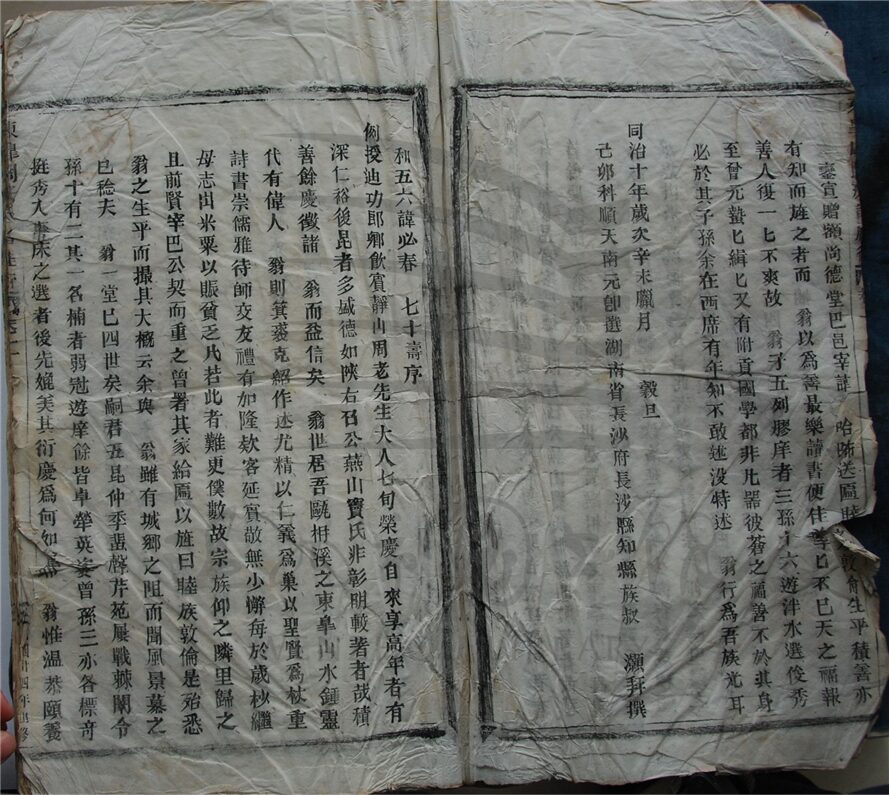 臺宣贈額尚德堂巴邑宰 詩 哈 送匾 睦 敦倫生平積善亦
有知而旌之者而 翁以為善最樂讀書便佳孳匕不已天之福報
善人復一匕不爽故 翁子五列膠庠者三孫十六遊泮水選俊秀
至晉元蟄匕緝匕又有附貢國學都非凡器彼蒼之福善不於其身
必於其子孫余在西席有年知不敢述沒特述 翁行為吾族光耳
同治十年歲次辛未臘月 穀旦
己卯科順天南元即選湖南省長沙府長沙縣知縣族叔 灝拜撰
和五六諱必春 七十壽序
例授迪功郎鄉飲賓靜山周老先生大人七旬榮慶自來享高年者有
深仁裕後昆者多盛德如陝右召公燕山竇氏非彰明較著者哉積
善餘慶徵諸 翁而益信矣 翁世居吾甌枏溪之東皐山水鍾靈
代有偉人 翁則箕裘克紹作述尤精以仁義為巢以聖賢為杖重
詩書崇儒雅待師交友禮有如隆欵客延賓敬無少懈每於歲杪繼
母志出米粟以賑貧乏凡若此者難更僕數故宗族仰之隣里歸之
且前賢宰巴公契而重之曾署其家給匾以旌曰睦族敦倫是殆悉
翁之生平而撮其大概云余與 翁雖有城鄉之阻而聞風景慕之
已稔夫 翁一堂已四世矣嗣君五昆仲季蜚聲芹苑屢戰棘闈令
孫十有二其一名楠者弱冠遊庠餘皆卓犖英姿曾孫三亦各標奇
挺秀入 床之選者後先媲美其衍慶為何如 翁惟溫恭頤養